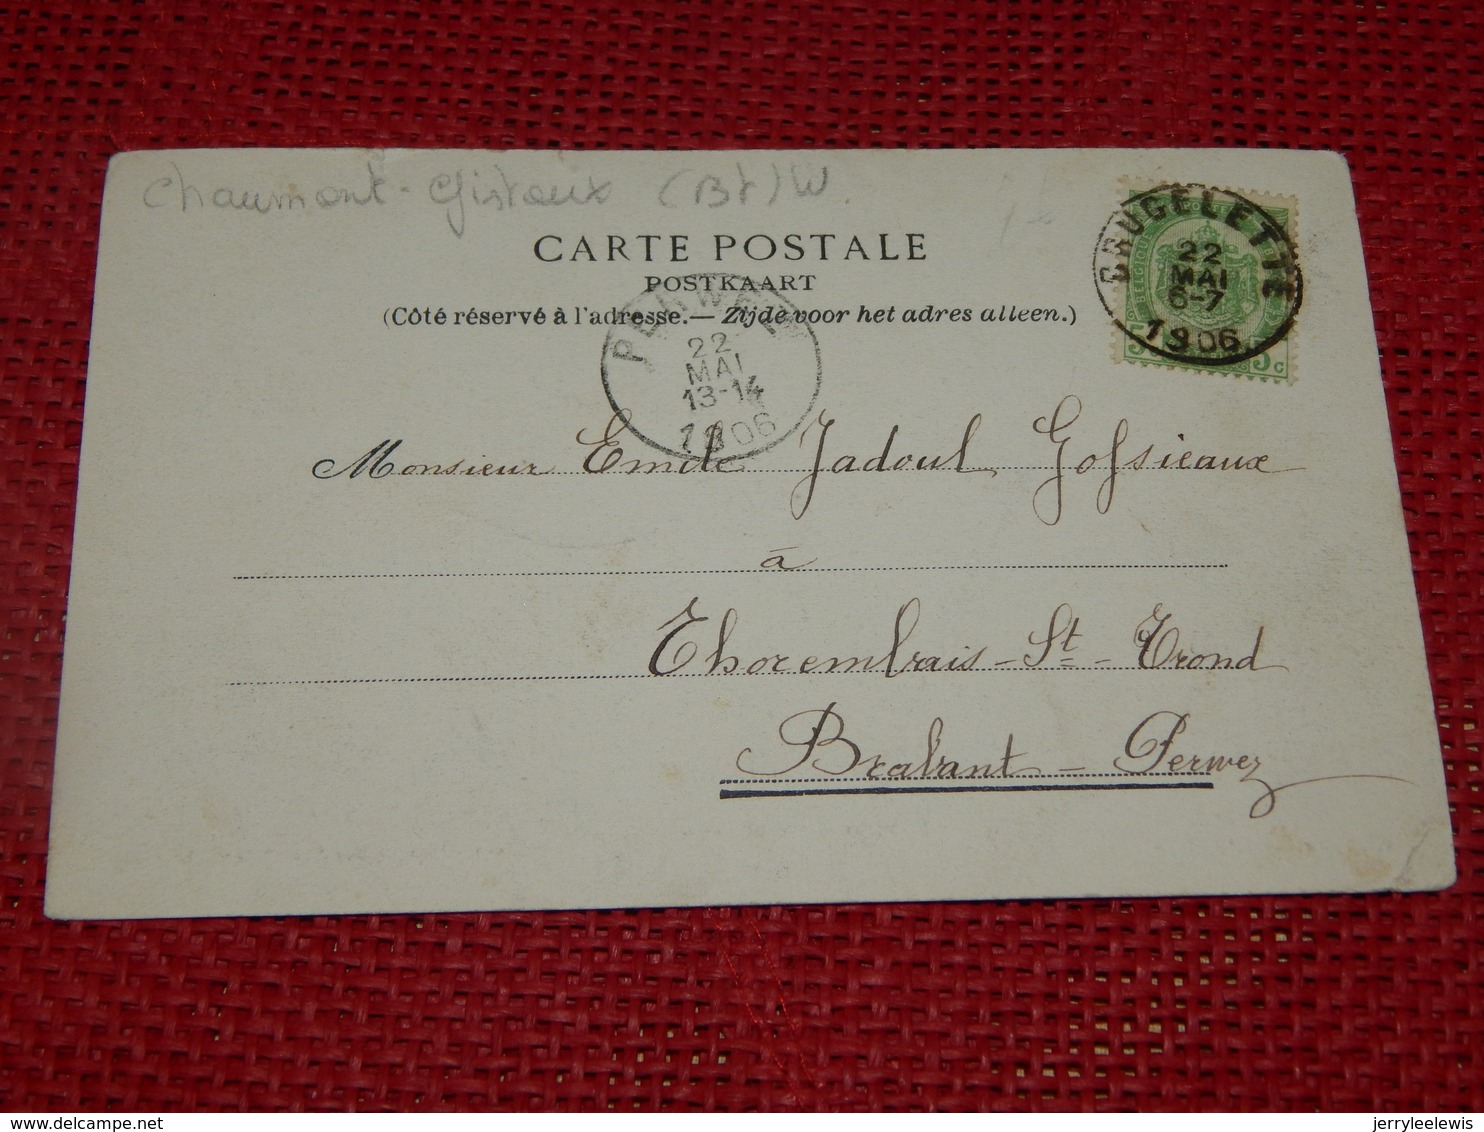 Chaumont-Gistoux (Bt) W.
CARTE POSTALE
POSTKAART
(Côté réservé à l'adresse.— Zijde voor het adres alleen.)
BRUGELETTE
22
MAI
6-7
1906
BELGIQUE
5 5c
PERWEZ
22
MAI
13-14
1906
Monsieur Emile Jadoul Gofsieaux
à
Thorembais-St-Trond
Brabant - Perwez
jerryleelewis